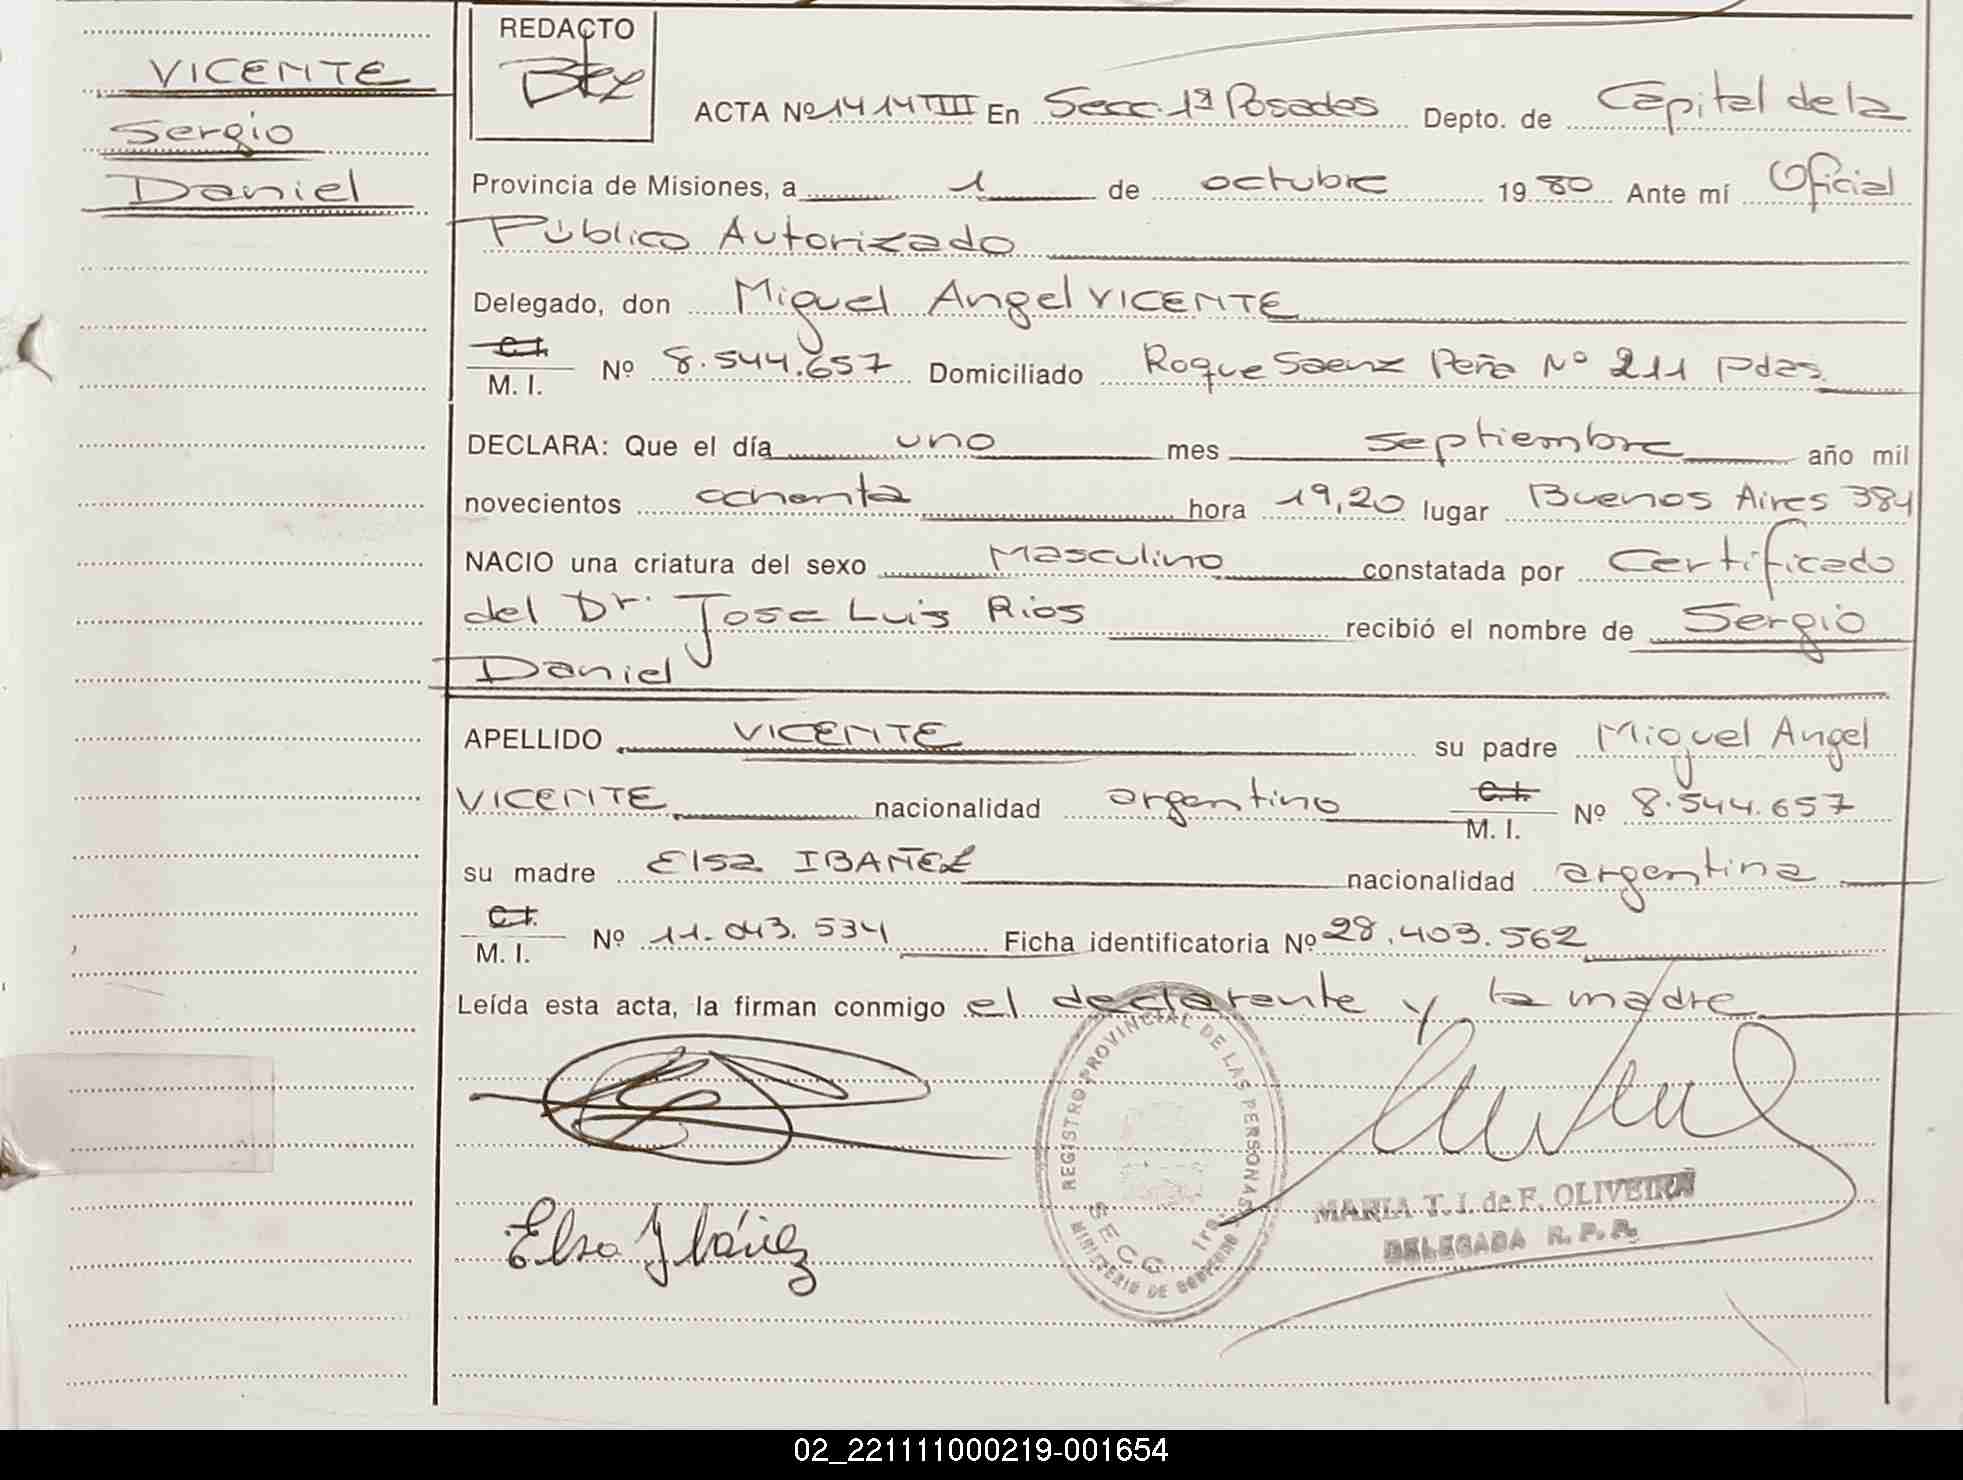 VICENTE
Sergio
Daniel
REDACTO
ACTA Nº 1414 TIII En Secc. 1ª Posadas Depto. de Capital de la
Provincia de Misiones, a 1 de octubre 19 80 Ante mí Oficial
Público Autorizado
Delegado, don Miguel Angel VICENTE
C.I.
M. I. Nº 8.544.657 Domiciliado Roque Saenz Peña Nº 211 pdas.
DECLARA: Que el día uno mes septiembre año mil
novecientos ochenta hora 19,20 lugar Buenos Aires 384
NACIO una criatura del sexo Masculino constatada por Certificado
del Dr. Jose Luis Rios recibió el nombre de Sergio
Daniel
APELLIDO VICENTE su padre Miguel Angel
VICENTE nacionalidad argentino C.I. M. I. Nº 8.544.657
su madre Elsa IBAÑEZ nacionalidad argentina
C.I.
M. I. Nº 11.043.534 Ficha identificatoria Nº 28.403.562
Leída esta acta, la firman conmigo el declarante y la madre
REGISTRO PROVINCIAL DE LAS PERSONAS
SECC. 1ra.
MINISTERIO DE GOBIERNO
MARIA T. I. de F. OLIVEIRA
DELEGADA R. P. P.
Elsa Ibáñez
02_221111000219-001654